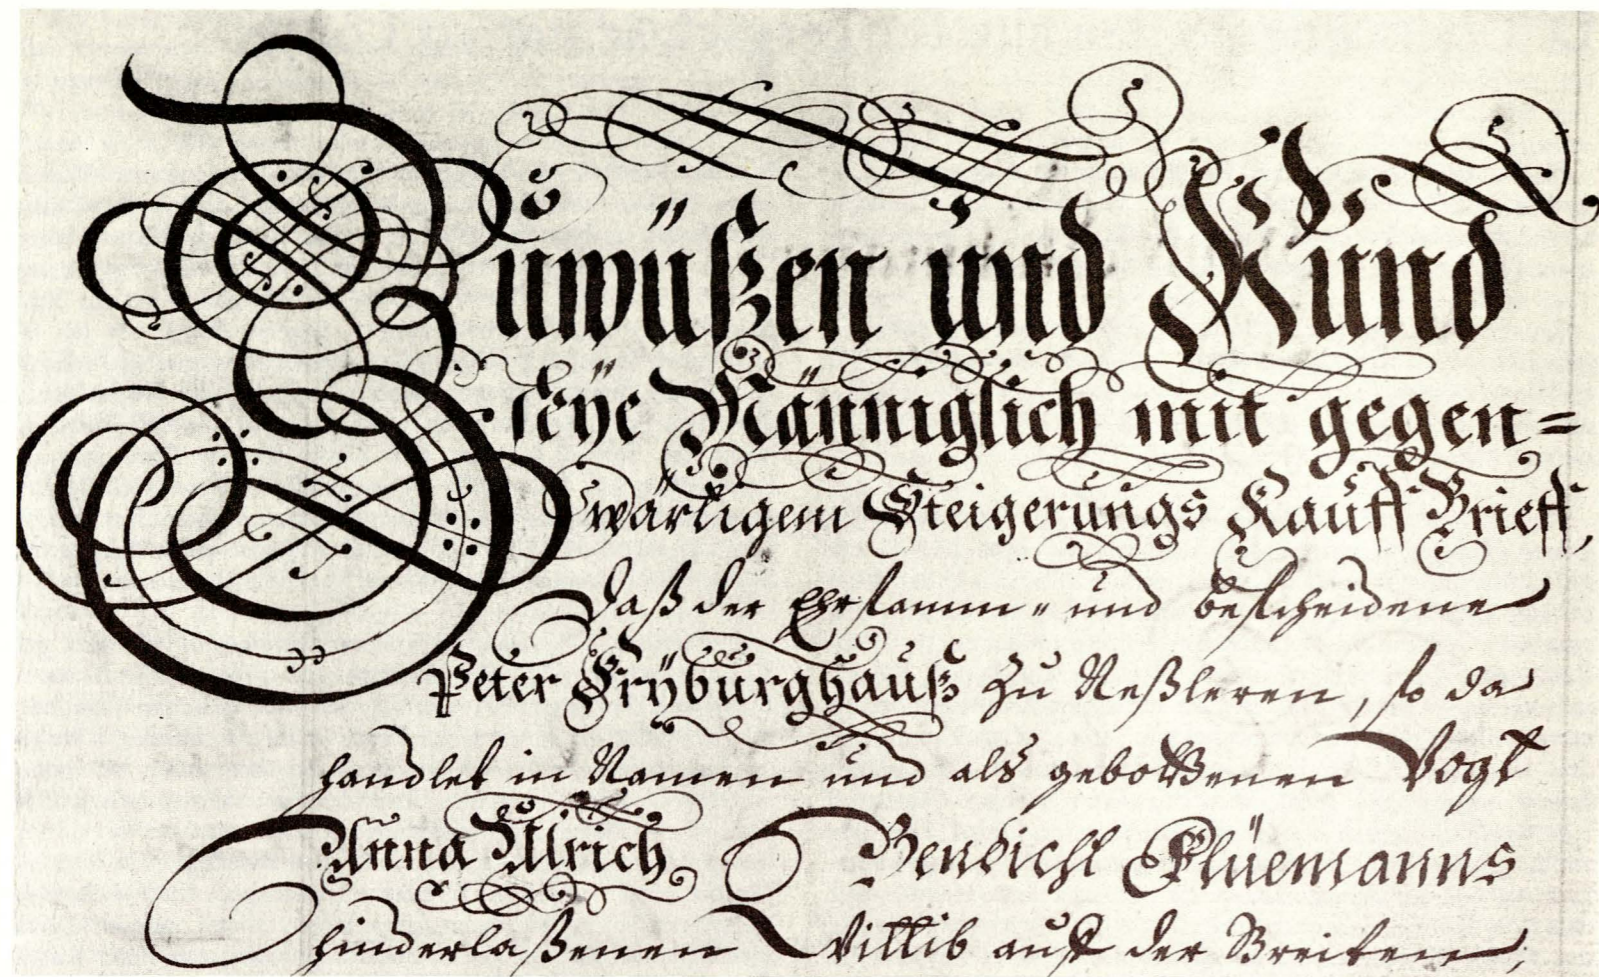 Zůwüßen und Kund
seÿe Männiglich mit gegen=
wärtigem Steigerungs Kauff Brieff,
daß der Ehrsamm= und bescheidene
Peter Frÿburghauß zu Neßleren, so da
handlet in Namen und als gebottenen Vogt
Anna Ulrich Bendicht Flüemanns
hinderlaßenen Wittib auß der Breiten,